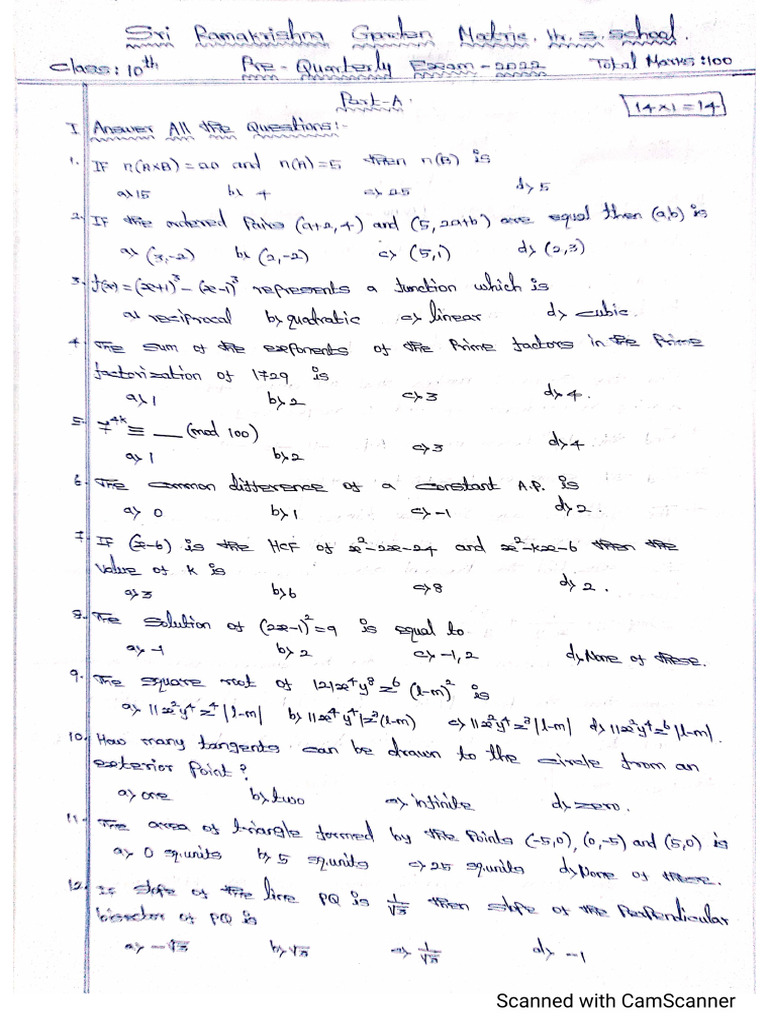 Sri Ramakrishna Garden Matric. Hr. S. School.
Class: 10th Pre-Quarterly Exam-2022 Total Marks:100
Part-A. 14x1=14
I Answer All the Questions:-
1. If n(AxB)=20 and n(A)=5 then n(B) is
a) 15 b) 4 c) 25 d) 5
2. If the ordered Pairs (a+2,4) and (5,2a+b) are equal then (a,b) is
a) (3,-2) b) (2,-2) c) (5,1) d) (2,3)
3. f(x)=(x+1)³-(x-1)³ represents a function which is
a) reciprocal b) quadratic c) linear d) cubic.
4. The sum of the exponents of the Prime factors in the Prime
factorization of 1729 is
a) 1 b) 2 c) 3 d) 4.
5. 7^4k ≡ __ (mod 100)
a) 1 b) 2 c) 3 d) 4
6. The common difference of a constant A.P. is
a) 0 b) 1 c) -1 d) 2.
7. If (x-6) is the HCF of x²-2x-24 and x²-kx-6 then the
value of k is
a) 3 b) 6 c) 8 d) 2.
8. The solution of (2x-1)²=9 is equal to
a) -1 b) 2 c) -1,2 d) None of these.
9. The square root of 121x⁴y⁸z⁶(l-m)² is
a) 11x²y⁴z⁴|l-m| b) 11x⁴y⁴|z³(l-m) c) 11x²y⁴z³|l-m| d) 11x²y⁴z⁶|l-m|.
10. How many tangents can be drawn to the circle from an
exterior Point?
a) one b) two c) infinite d) zero.
11. The area of triangle formed by the Points (-5,0), (0,-5) and (5,0) is
a) 0 sq.units b) 5 sq.units c) 25 sq.units d) None of these.
12. If slope of the line PQ is 1/√3 then slope of the Perpendicular
bisector of PQ is
a) -√3 b) √3 c) 1/√3 d) -1
Scanned with CamScanner